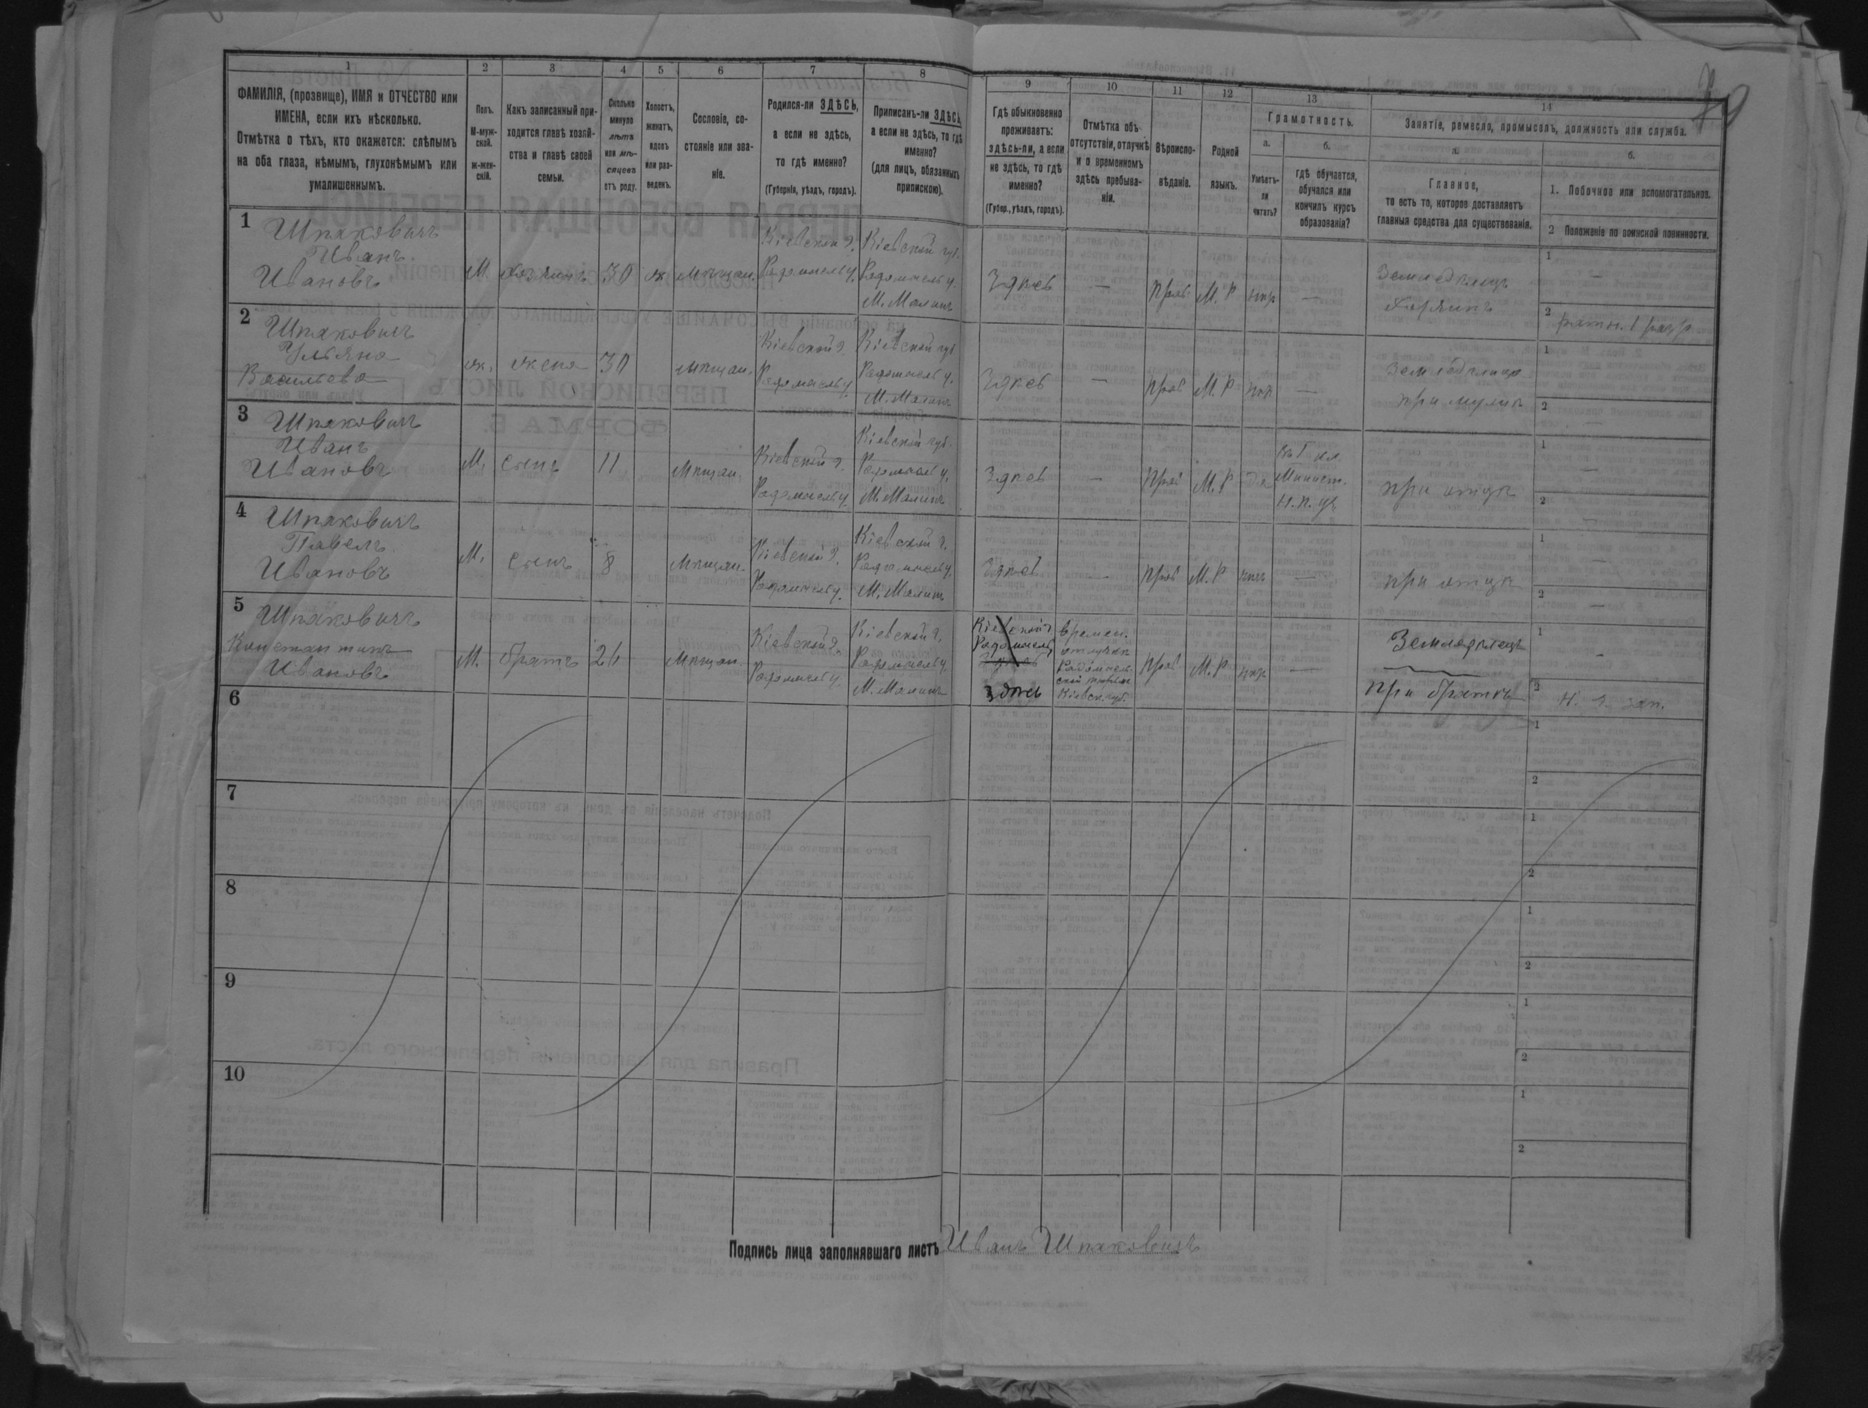 1
2
3
4
5
6
7
8
9
10
11
12
13
14
ФАМИЛІЯ, (прозвище), ИМЯ и ОТЧЕСТВО или
ИМЕНА, если ихъ нѣсколько.
Отмѣтка о тѣхъ, кто окажется: слѣпымъ
на оба глаза, нѣмымъ, глухонѣмымъ или
умалишеннымъ.
Полъ.
М-муж-
ской.
ж-жен-
скій.
Какъ записанный при-
ходится главѣ хозяй-
ства и главѣ своей
семьи.
Сколько
минуло
лѣтъ
или мѣ-
сяцевъ
отъ роду.
Холостъ,
женатъ,
вдовъ
или раз-
веденъ.
Сословіе, со-
стояніе или зва-
ніе.
Родился-ли ЗДѢСЬ,
а если не здѣсь,
то гдѣ именно?
(Губернія, уѣздъ, городъ).
Приписанъ-ли ЗДѢСЬ,
а если не здѣсь, то гдѣ
именно?
(для лицъ, обязанныхъ
припискою).
Гдѣ обыкновенно
проживаетъ:
здѣсь-ли, а если
не здѣсь, то гдѣ
именно?
(Губерн., уѣздъ, городъ).
Отмѣтка объ
отсутствіи, отлучкѣ
и о временномъ
здѣсь пребыва-
ніи.
Вѣроиспо-
вѣданіе.
Родной
языкъ.
Грамотность.
а.
Умѣетъ-
ли
читать?
б.
гдѣ обучается,
обучался или
кончилъ курсъ
образованія?
Занятіе, ремесло, промыселъ, должность или служба.
а.
Главное,
то есть то, которое доставляетъ
главныя средства для существованія.
б.
1. Побочное или вспомогательное.
2 Положеніе по воинской повинности.
1
Шпаковичъ
Иванъ
Ивановъ
М. хозяинъ 30 ж мѣщан.
Кіевской г.
Радомысль у.
Кіевской губ.
Радомысль у.
М. Малинъ
Здѣсь — прав М. Р —
Земледѣлецъ
хозяинъ
1 —
2 ратн. 1 разр
2
Шпаковичъ
Ульяна
Васильева
ж. жена 30 мѣщан.
Кіевской г.
Радомысль у.
Кіевской губ
Радомысль у.
М. Малинъ
Здѣсь — прав М. Р —
при мужѣ
1
2 —
3
Шпаковичъ
Иванъ
Ивановъ
М. сынъ 11 мѣщан.
Кіевской г.
Радомысль у.
Кіевской губ.
Радомысль у.
М. Малинъ
Здѣсь — прав М. Р да
Минист.
н. п. уч
при отцѣ
1 —
2 —
4
Шпаковичъ
Павелъ
Ивановъ
М. сынъ 8 мѣщан.
Кіевской г.
Радомысль у.
Кіевской г.
Радомысль у.
М. Малинъ
Здѣсь — прав М. Р —
при отцѣ
1 —
2 —
5
Шпаковичъ
Константинъ
Ивановъ
М. братъ 26 мѣщан
Кіевской г.
Радомысль у.
Кіевской г.
Радомысль у.
М. Малинъ
Кіевской г
Радомысль
здѣсь
времен.
отлучкѣ
Кіевск. губ.
прав М. Р
Земледѣлецъ
при братѣ
1 —
2
6
1
2
7
1
2
8
1
2
9
1
2
10
1
2
Подпись лица заполнявшаго листъ Иванъ Шпаковичъ